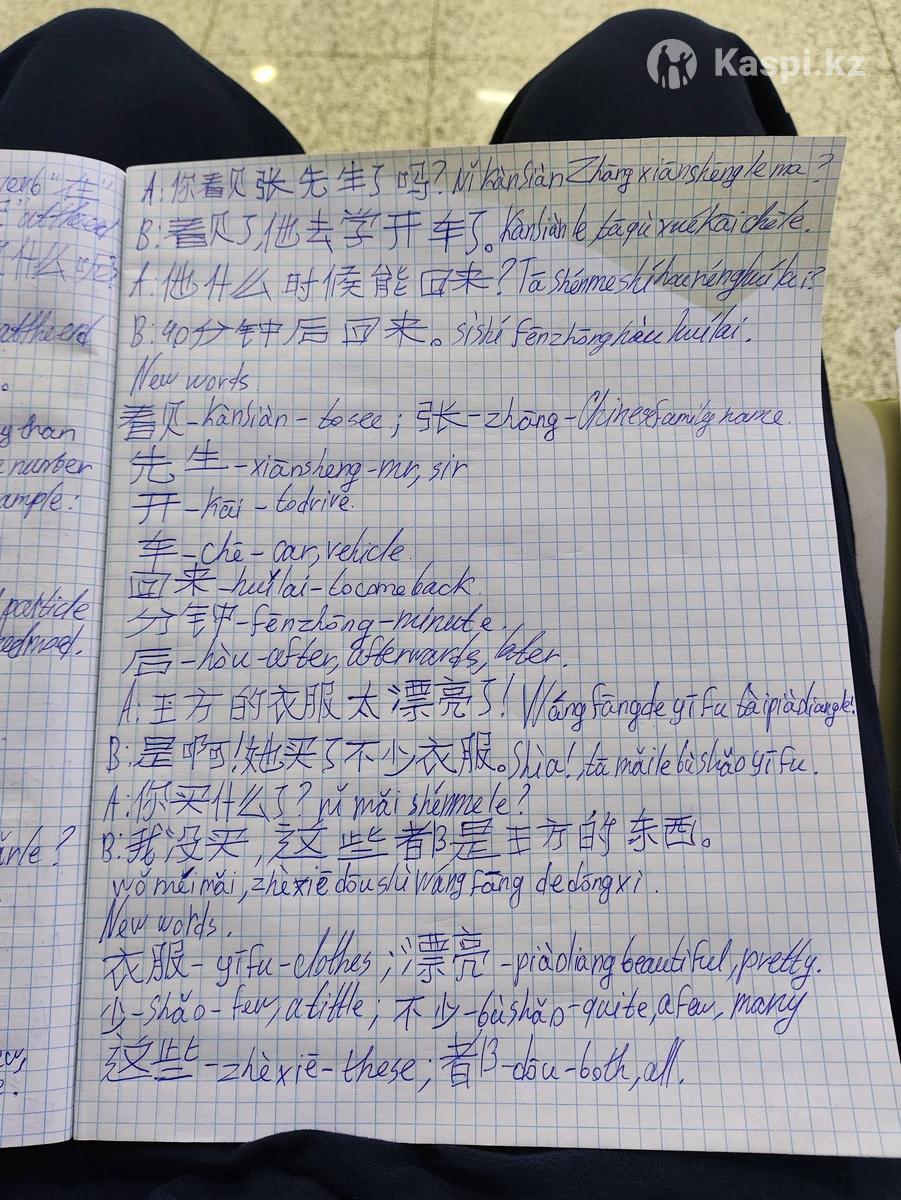 Kaspi.kz
verb "在"
A: 你看见张先生了吗? Nǐ kànsiàn Zhāng xiānshēng le ma?
B: 看见了,他去学开车了。Kànsiàn le, tā qù xué kāi chē le.
什么呢?
A: 他什么时候能回来? Tā shénme shíhou néng huí lai?
B: 40分钟后回来。sìshí fēnzhōng hòu huí lai.
New words.
看见-kànsiàn-to see; 张-zhāng-Chinese family name.
y than
先生-xiānsheng-mr, sir
number
开-kāi-to drive.
ample:
车-chē-car, vehicle.
回来-huílai-to come back.
particle
分钟-fēnzhōng-minute.
后-hòu-after, afterwards, later.
A: 王方的衣服太漂亮了! Wáng fāng de yīfu tài piàoliang le!
B: 是啊!她买了不少衣服。Shì a!, tā mǎi le bùshǎo yīfu.
A: 你买什么了? nǐ mǎi shénme le?
B: 我没买,这些都是王方的东西。
wǒ méi mǎi, zhèxiē dōu shì Wáng fāng de dōngxi.
New words.
衣服-yīfu-clothes; 漂亮-piàoliang beautiful, pretty.
少-shǎo-few, a little; 不少-bùshǎo-quite, a few, many
这些-zhèxiē-these; 都-dōu-both, all.